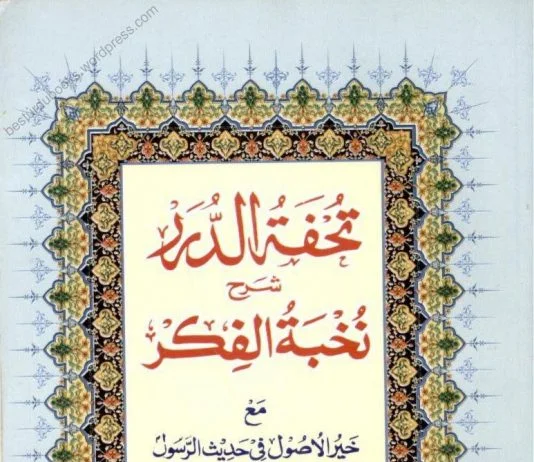 besturdubooks.wordpress.com
تُحْفَةُ الدُّرَرْ
شَرح
نُخْبَةُ الفِكَرْ
مَعَ
خَيرُ الاُصُول فِی حَدِیثِ الرَّسُولْ